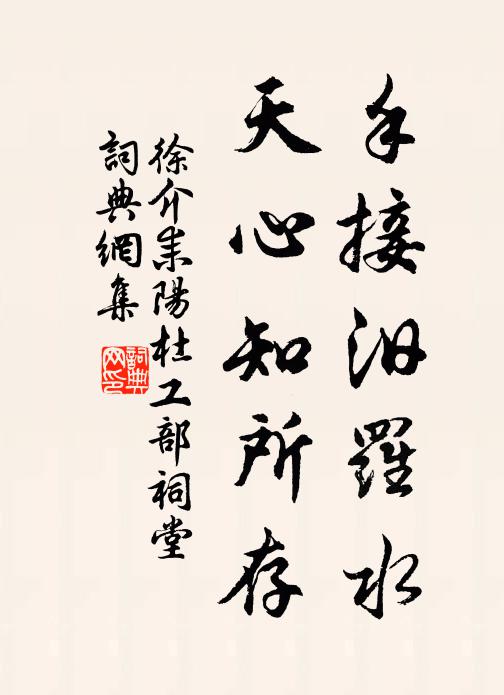 手接汨羅水
天心知所存
徐介耒陽杜工部祠堂
詞典網集
詞典
网印